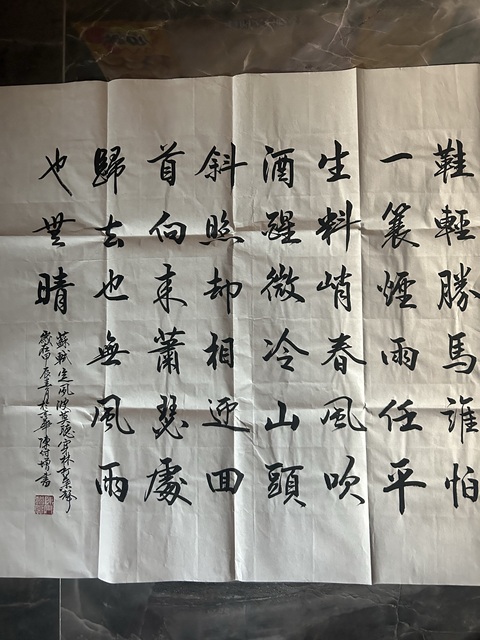 鞋輕勝馬誰怕
一蓑煙雨任平
生料峭春風吹
酒醒微冷山頭
斜照却相迎回
首向來蕭瑟處
歸去也無風雨
也無晴
蘇軾定風波莫聽穿林打葉聲
歲在甲辰月於陳付增書